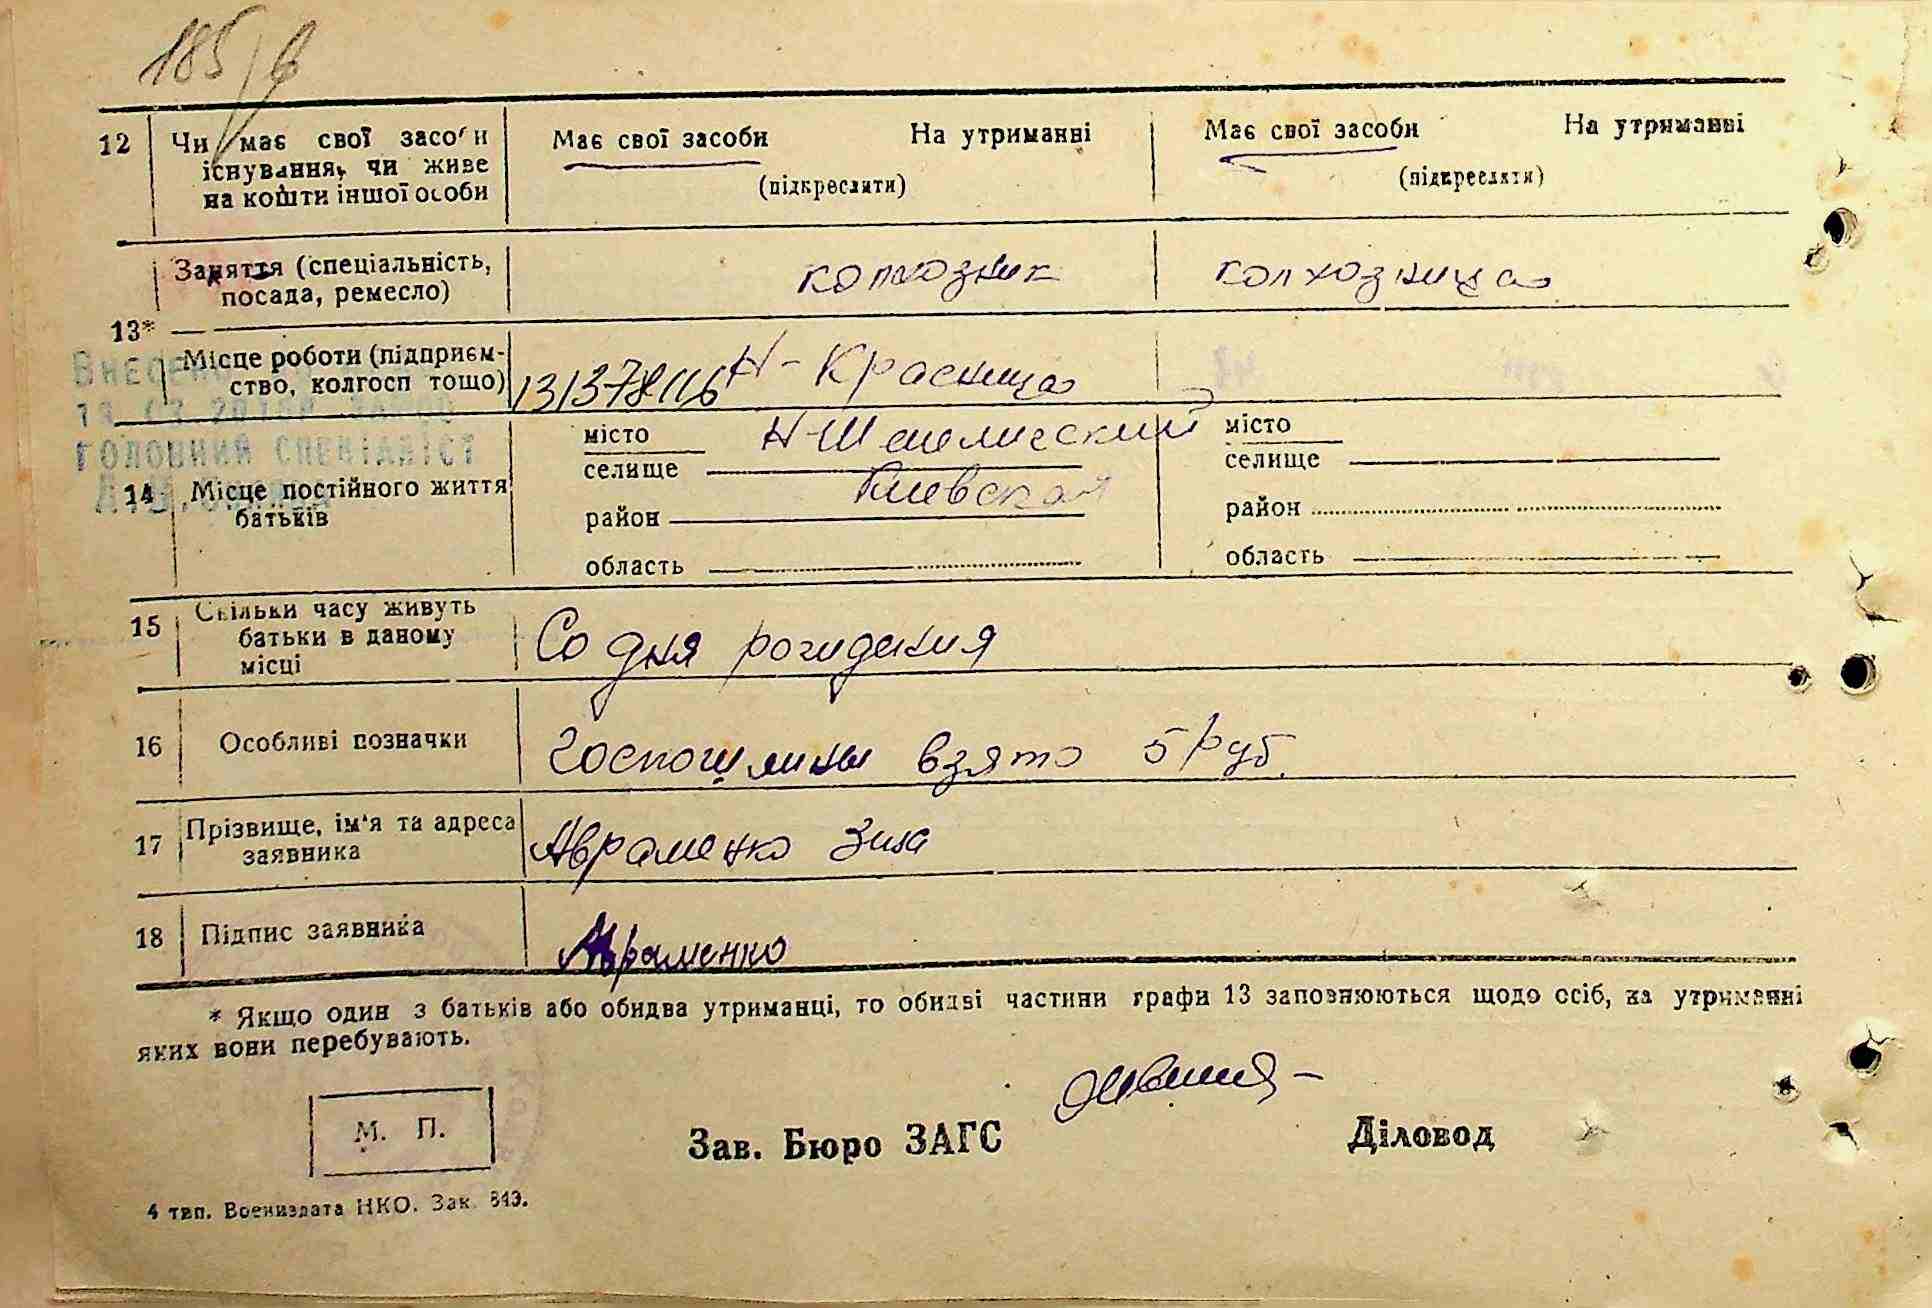 185/в
12 Чи має свої засоби Має свої засоби На утриманні Має свої засоби На утриманні
існування, чи живе
на кошти іншої особи (підкреслити) (підкреслити)
Заняття (спеціальність, колхозник колхозница
посада, ремесло)
13*
Місце роботи (підприєм- Н-Красница
ство, колгосп тощо) 13137816
Внесено
ГОЛОВНИЙ СПЕЦІАЛІСТ
14 Місце постійного життя
батьків
місто Н-Шепеличский місто
селище селище
Киевская
район район
область область
15 Скільки часу живуть
батьки в даному Со дня рождения
місці
16 Особливі позначки Госпошлины взято 5 руб.
17 Прізвище, ім'я та адреса Авраменко Зина
заявника
18 Підпис заявника Авраменко
* Якщо один з батьків або обидва утриманці, то обидві частини графи 13 заповнюються щодо осіб, на утриманні
яких вони перебувають.
М. П.
Зав. Бюро ЗАГС Діловод
4 тип. Воениздата НКО. Зак. 843.